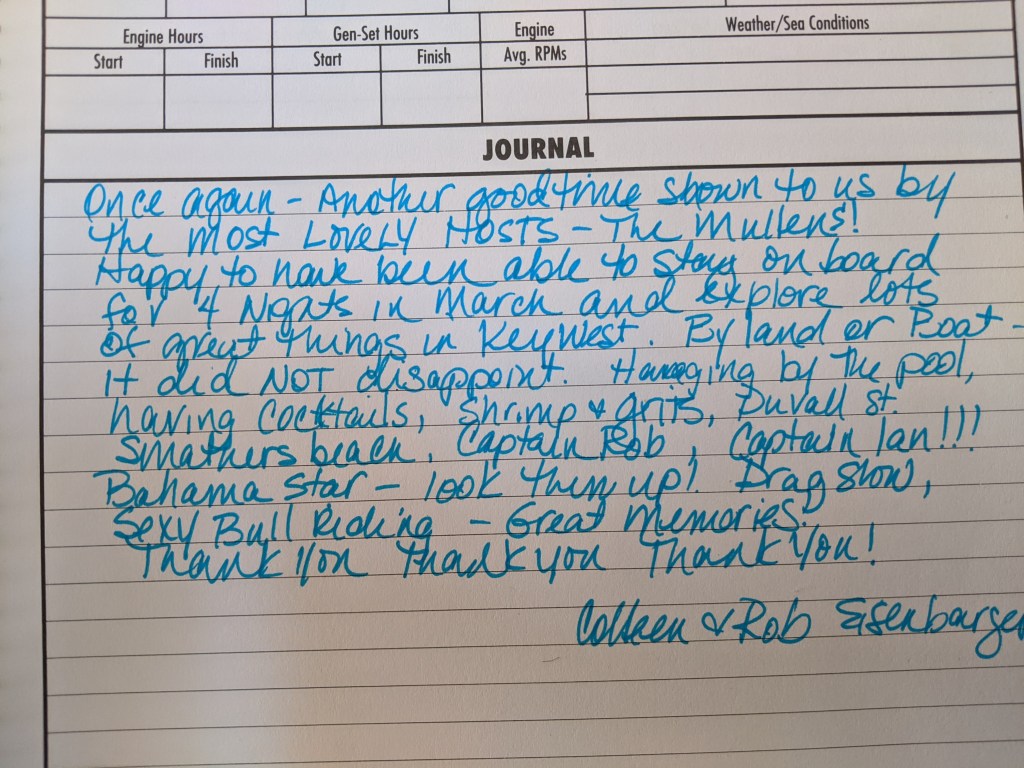 Engine Hours Gen-Set Hours Engine Weather/Sea Conditions
Start Finish Start Finish Avg. RPMs
JOURNAL
Once again - Another good time shown to us by
the most LOVELY HOSTS - The Mullens!
Happy to have been able to stay on board
for 4 Nights in March and explore lots
of great things in Key West. By land or Boat -
it did NOT disappoint. Hanging by the pool,
having Cocktails, Shrimp & grits, Duvall St.
Smathers beach, Captain Rob, Captain Ian!!!
Bahama Star - look them up! Drag Show,
Sexy Bull Riding - Great Memories!
Thank You Thank you Thank You!
Colleen & Rob